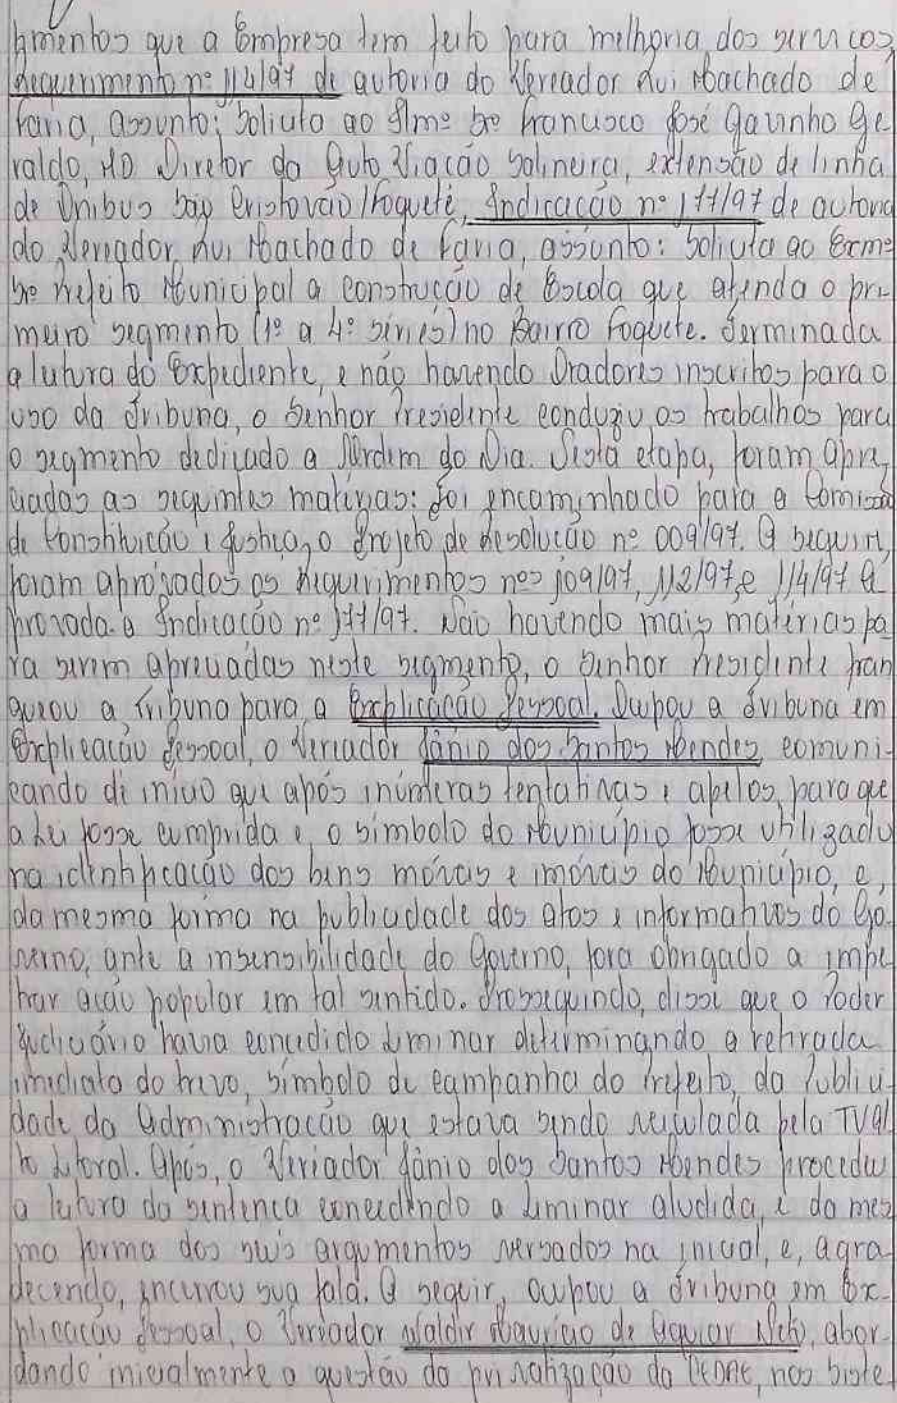 timentos que a Empresa tem feito para melhoria dos serviços,
Requerimento nº 114/97 de autoria do Vereador Rui Machado de
Faria, assunto: Solicita ao Ilmº Srº Francisco José Gavinho Ge
raldo, MD Diretor da Auto Viação Salineira, extensão de linha
de Ônibus São Cristovão/Foguete, Indicação nº 177/97 de autoria
do Vereador Rui Machado de Faria, assunto: Solicita ao Exmº
Srº Prefeito Municipal a construção de Escola que atenda o pri-
meiro segmento (1º a 4º séries) no Bairro Foguete. Terminada
a leitura do Expediente, e não havendo Oradores inscritos para o
uso da Tribuna, o Senhor Presidente conduziu os trabalhos para
o segmento dedicado a Ordem do Dia. Nesta etapa, foram apre-
ciadas as seguintes matérias: Foi encaminhado para a Comissão
de Constituição e Justiça, o Projeto de Resolução nº 009/97. A seguir,
foram aprovados os Requerimentos nºs 109/97, 112/97, e 114/97 A
provada a Indicação nº 177/97. Não havendo mais matérias pa-
ra serem apreciadas neste segmento, o Senhor Presidente fran
queou a Tribuna para a Explicação Pessoal. Ocupou a Tribuna em
Explicação Pessoal, o Vereador Jânio dos Santos Mendes comuni-
cando de início que após inúmeras tentativas e apelos, para que
a Lei fosse cumprida e, o símbolo do Município fosse utilizado
na identificação dos bens móveis e imóveis do Município, e,
da mesma forma na publicidade dos atos e informativos do Go-
verno, ante a insensibilidade do Governo, fora obrigado a impe
trar ação popular em tal sentido. Prosseguindo, disse que o Poder
Judiciário havia concedido Liminar determinando a retirada
imediata do trevo, símbolo de campanha do Prefeito, da Publici-
dade da Administração que estava sendo veiculada pela TV Al
to Litoral. Após, o Vereador Jânio dos Santos Mendes procedeu
a leitura da sentença concedendo a Liminar aludida, e da mes
ma forma dos seus argumentos versados na inicial, e, agra
decendo, encerrou sua fala. A seguir, ocupou a Tribuna em Ex-
plicação Pessoal, o Vereador Waldir Maurício de Aguiar Neto, abor-
dando inicialmente a questão da privatização da CEDAE, nos siste